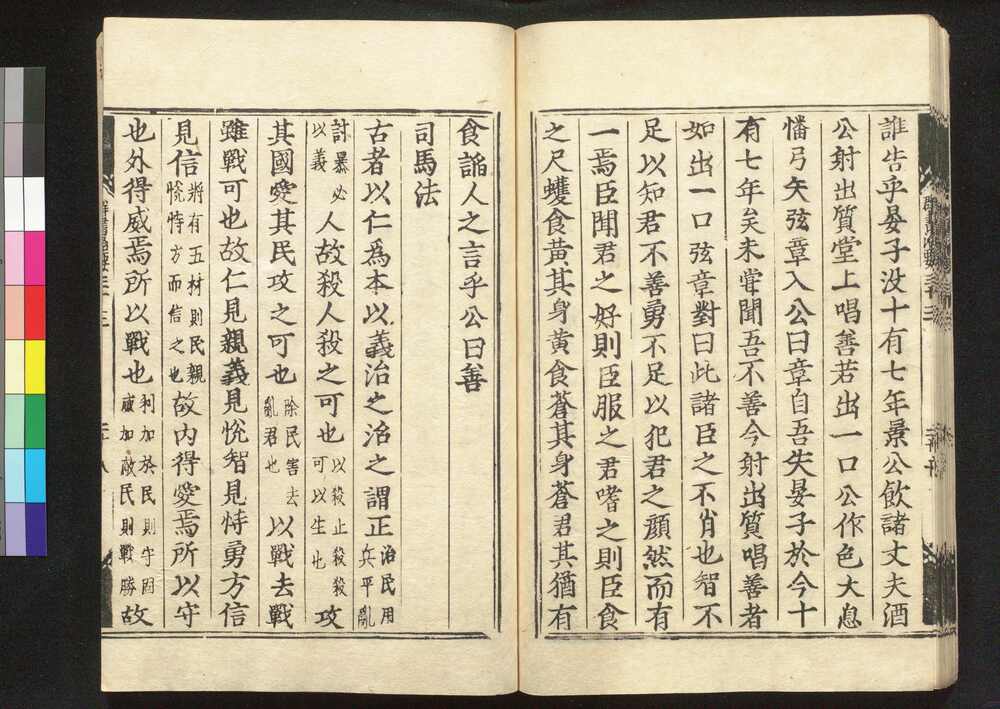 誰告乎晏子没十有七年景公飲諸丈夫酒
公射出質堂上唱善若出一口公作色大息
憣弓矢弦章入公曰章自吾失晏子於今十
有七年矣未甞聞吾不善今射出質唱善者
如出一口弦章對曰此諸臣之不肖也智不
足以知君不善勇不足以犯君之顔然而有
一焉臣聞君之好則臣服之君嗜之則臣食
之尺蠖食黄其身黄食蒼其身蒼君其猶有
食謟人之言乎公曰善
司馬法
古者以仁爲本以義治之治之謂正治民用兵平亂
討暴必以義人故殺人殺之可也以殺止殺殺可以生也攻
其國愛其民攻之可也除民害去亂君也以戰去戰
雖戰可也故仁見親義見恱智見恃勇方信
見信將有五材則民親恱恃方而信之也故内得愛焉所以守
也外得威焉所以戰也利加於民則守固威加敵民則戰勝故
群書治要